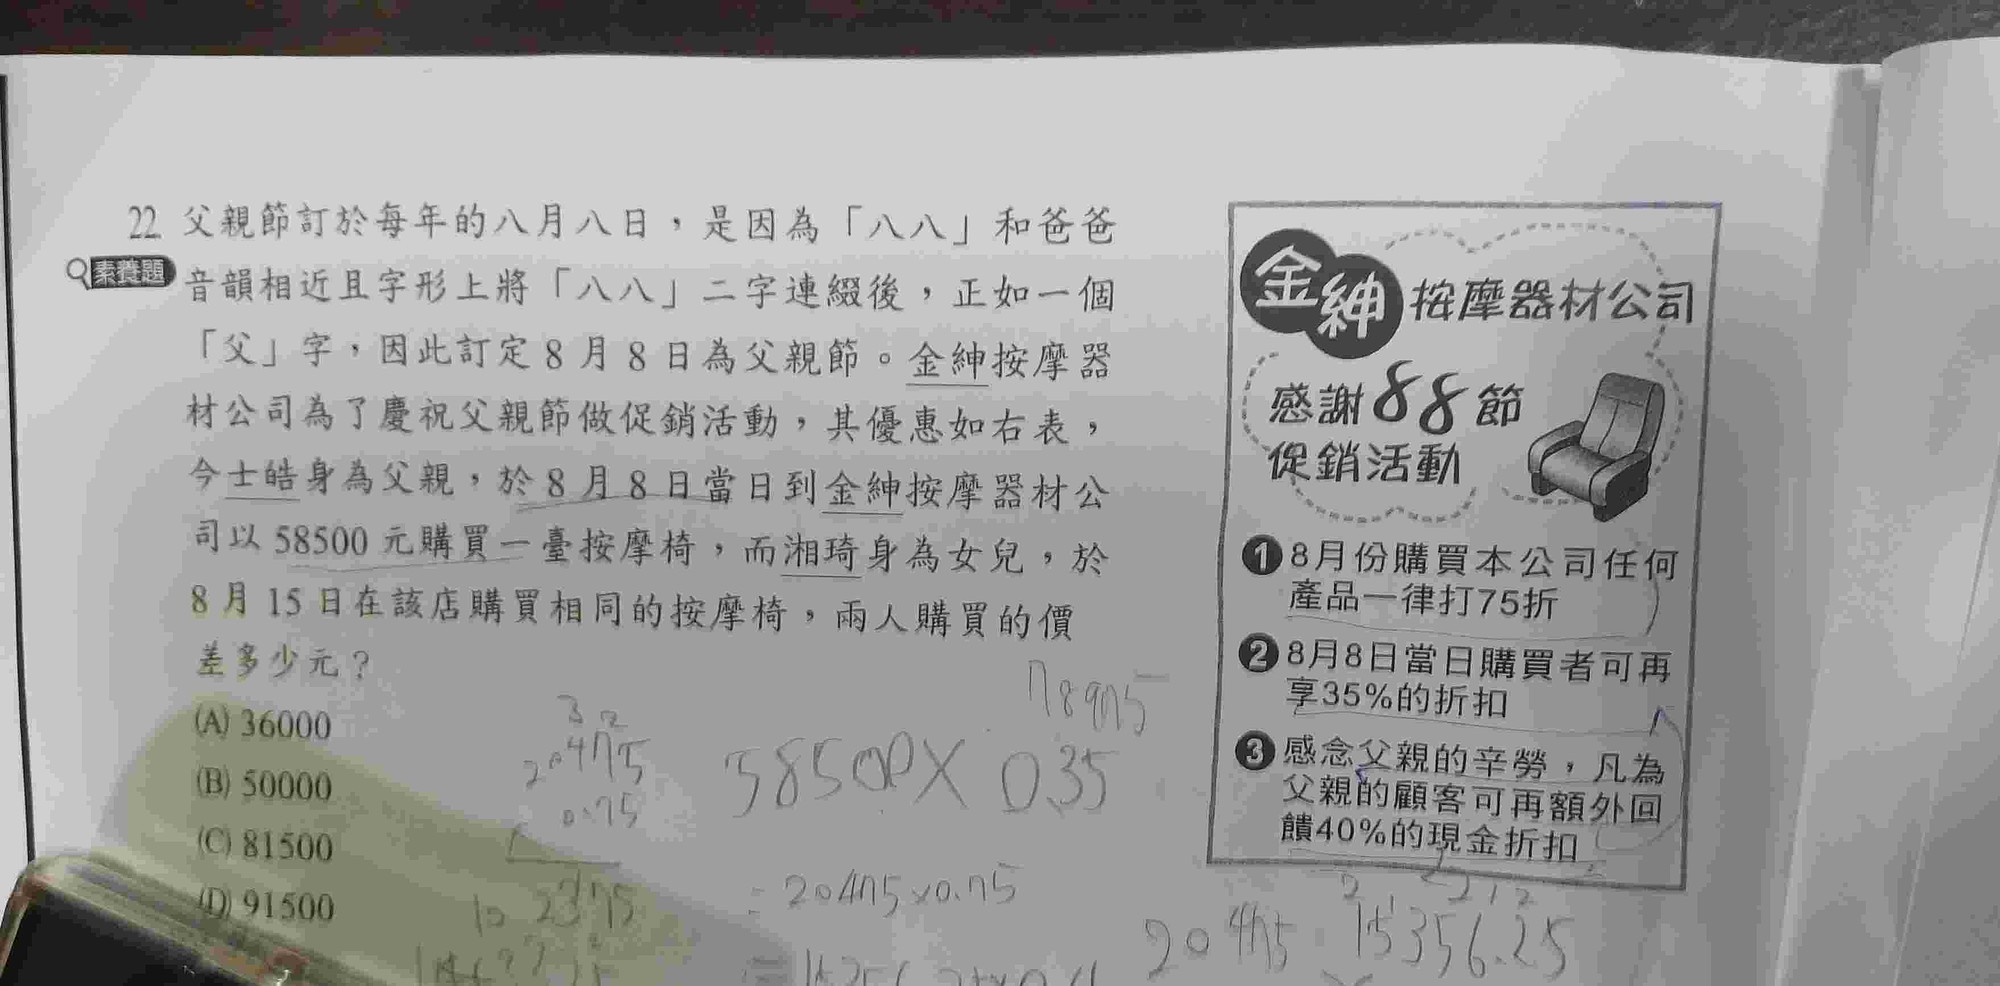 22 父親節訂於每年的八月八日，是因為「八八」和爸爸
素養題
音韻相近且字形上將「八八」二字連綴後，正如一個
「父」字，因此訂定8月8日為父親節。金紳按摩器
材公司為了慶祝父親節做促銷活動，其優惠如右表，
今士皓身為父親，於8月8日當日到金紳按摩器材公
司以58500元購買一臺按摩椅，而湘琦身為女兒，於
8月15日在該店購買相同的按摩椅，兩人購買的價
差多少元？
(A) 36000
(B) 50000
(C) 81500
(D) 91500
金紳按摩器材公司
感謝88節
促銷活動
❶8月份購買本公司任何
產品一律打75折
❷8月8日當日購買者可再
享35%的折扣
❸感念父親的辛勞，凡為
父親的顧客可再額外回
饋40%的現金折扣
58500×0.35
=20475×0.75
20475
0.75
20475
15356.25